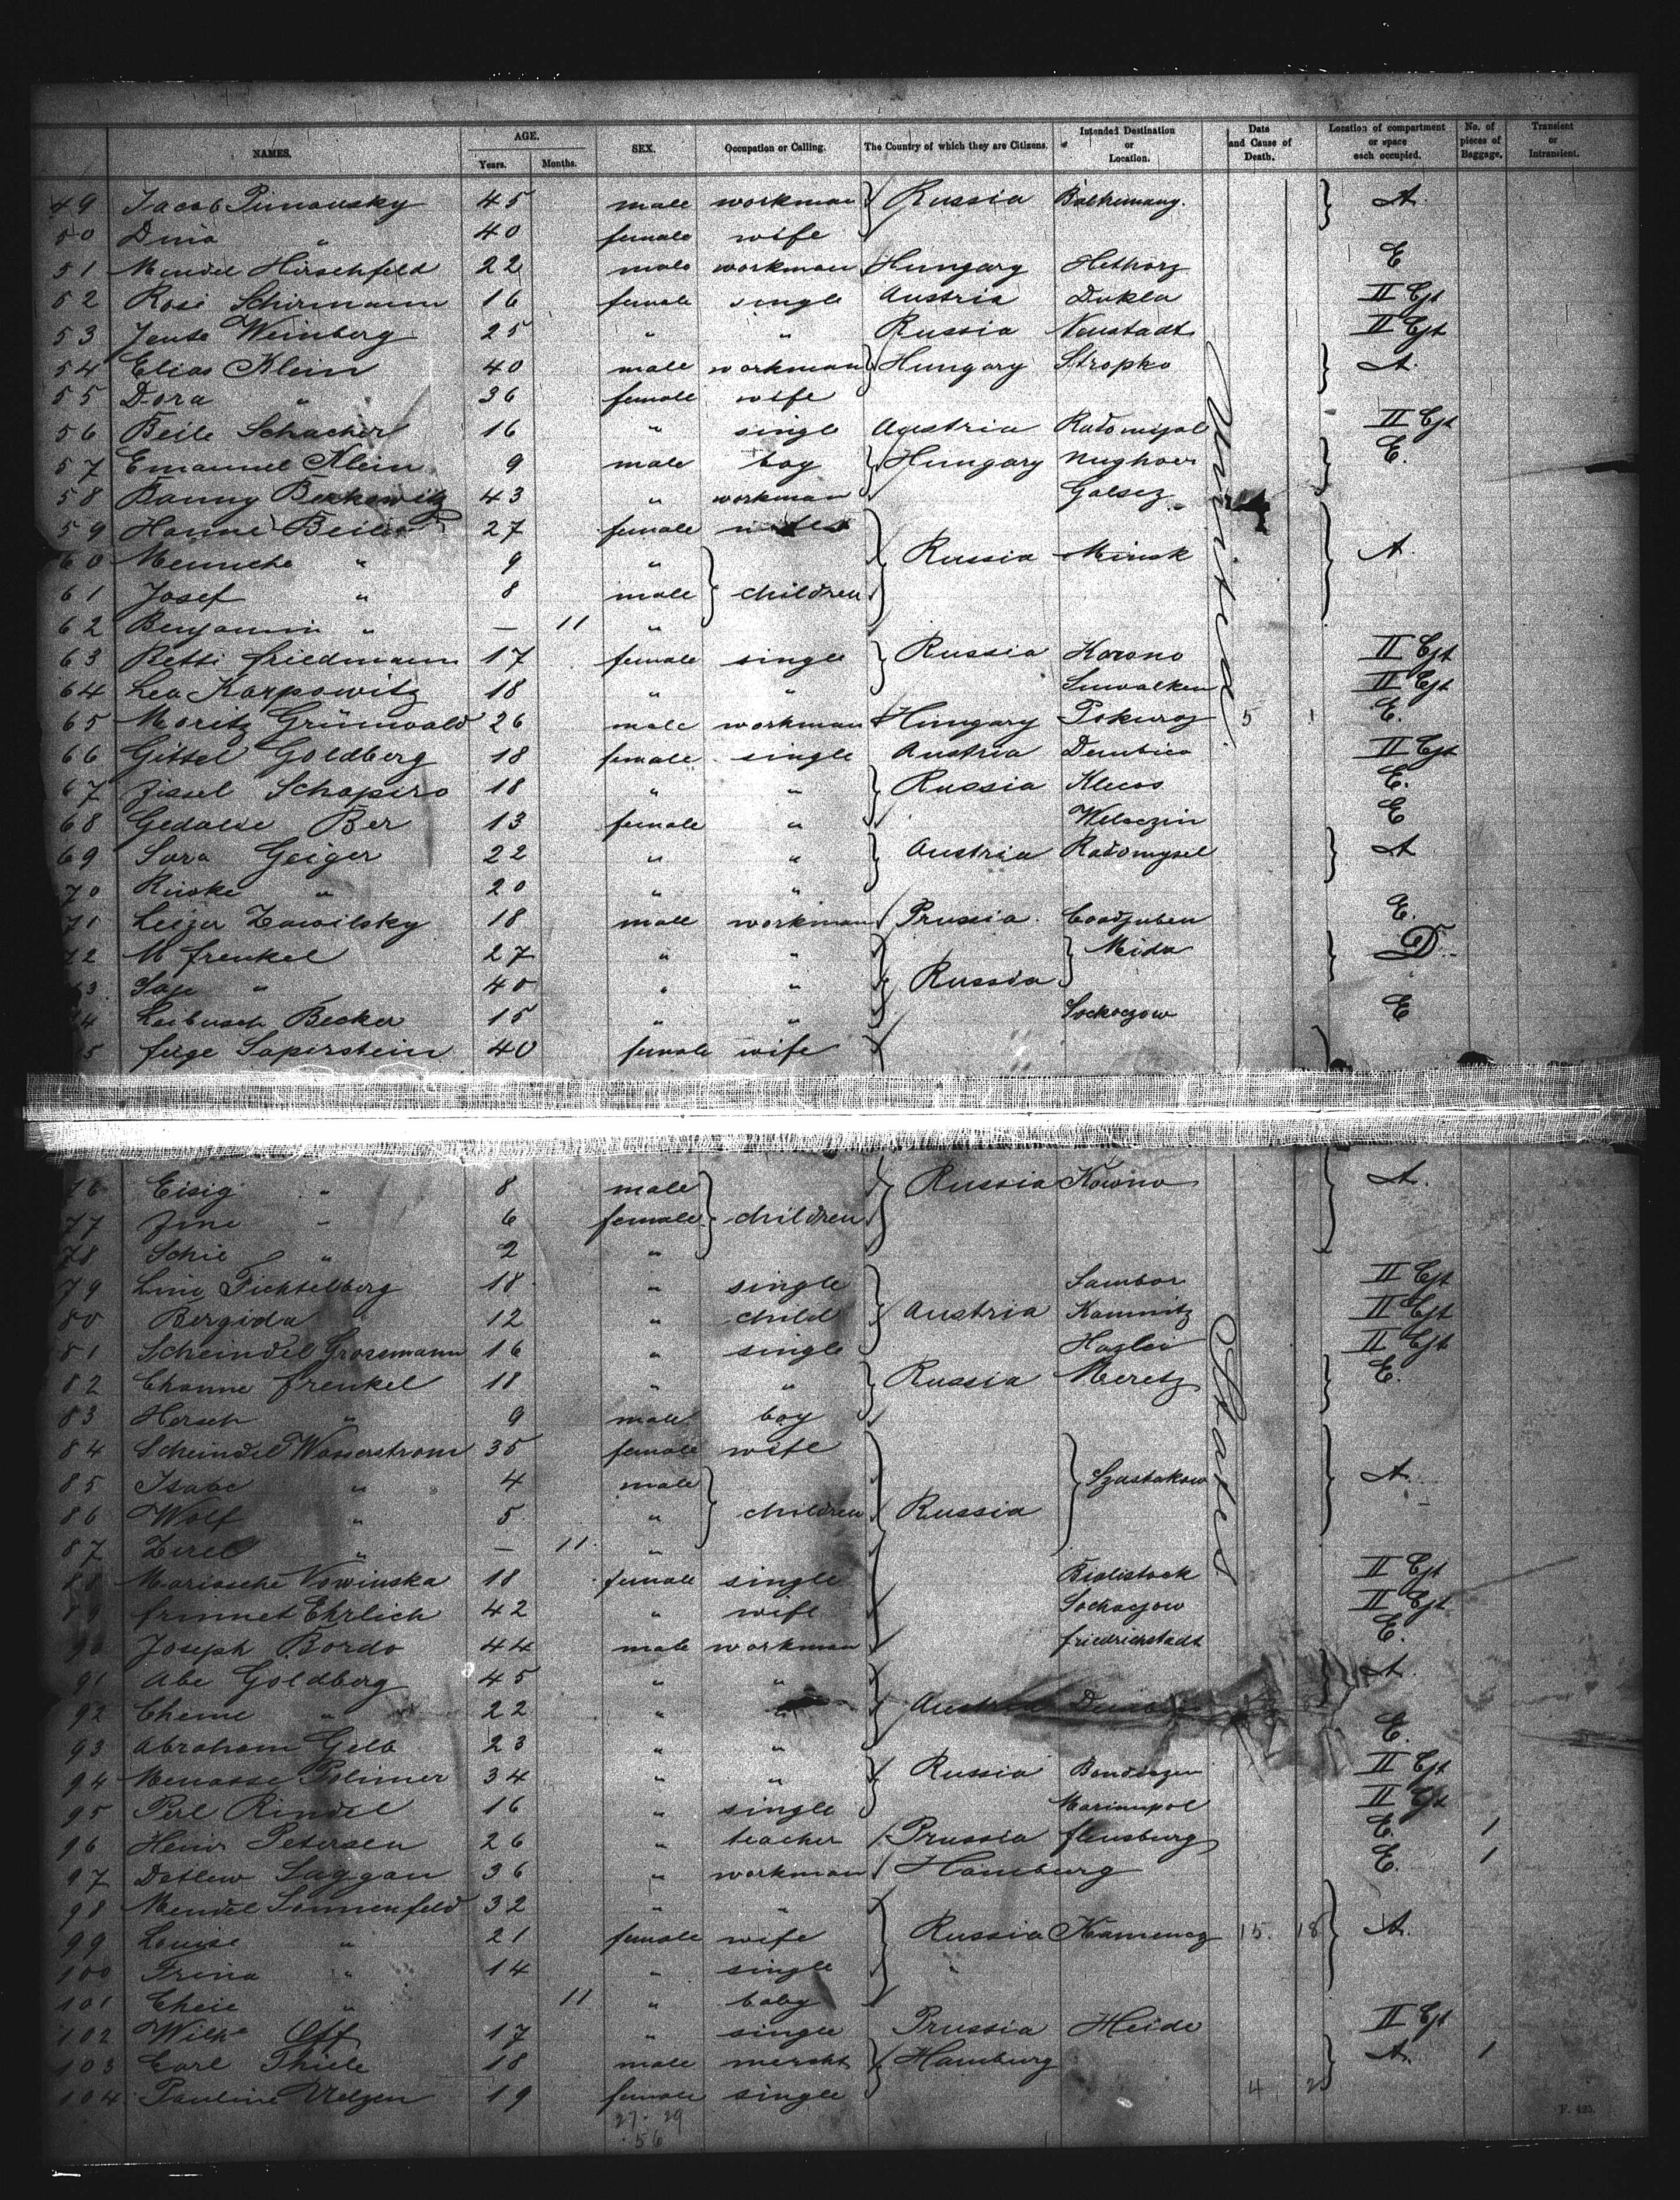 NAMES. AGE. Years. Months. SEX. Occupation or Calling. The Country of which they are Citizens. Intended Destination or Location. Date and Cause of Death. Location of compartment or space each occupied. No. of pieces of Baggage. Transient or Intransient.
49 Jacob 45 male workman Russia A.
50 Dina " 40 female wife
51 Mendel Hirschfeld 22 male workman Hungary E
52 Rosi Schirmann 16 female single Austria Dukla II Cjt
53 Jente Weinberg 25 " " Russia Neustadt II Cjt
54 Elias Klein 40 male workman Hungary Stropko A.
55 Dora " 36 female wife
56 Beile Schacher 16 " single Austria Radomysal II Cjt
57 Emanuel Klein 9 male boy Hungary E.
58 Berkowitz 43 " workman Galsez
59 Hanne Beilin 27 female
60 Mennche " 9 " Russia Minsk A.
61 Josef " 8 male children
62 Benjamin " — 11 "
63 Betti Friedmann 17 female single Russia Kowno II Cjt
64 Lea Karpowitz 18 " " Suwalken II Cjt
65 Moritz Grünwald 26 male workman Hungary 5 1 E.
66 Gittel Goldberg 18 female single Austria Dembica II Cjt
67 Schapiro 18 " " Russia E.
68 Gedalie Ber 13 female " E
69 Sara Geiger 22 " " Austria Radomysel A
70 Riwke " 20 " "
71 Leizer Zawilsky 18 male workman Prussia E.
72 M Frenkel 27 " " Mida D.
73 " 40 " " Russia
74 Leibusch Becker 15 " " Sochaczow E
75 Feige Saperstein 40 female wife
76 Eisig " 8 male Russia Kowno A.
77 Zine " 6 female children
78 Schie " 2 "
79 Line Fichtelberg 18 " single Sambor II Cjt
80 Bergida 12 " child Austria Kamnitz II Cjt
81 Scheindel Grossmann 16 " single II Cjt
82 Channe Frenkel 18 " " Russia Meretz E.
83 Hersch " 9 male boy
84 Scheindel Wasserstrom 35 female wife
85 Isaac " 4 male A.
86 Wolf " 5 " children Russia
87 Zirel " — 11 "
88 Mariasche Nowinska 18 female single Bialistock II Cjt
89 Ehrlich 42 " wife Sochaczow II Cjt
90 Joseph Bordo 44 male workman Friedrichstadt E.
91 Abe Goldberg 45 " " A.
92 Cheme " 22 " " Austria
93 Abraham Gelb 23 " " E.
94 Menasse Polimer 34 " " Russia II Cjt
95 Perl Rindel 16 " single Mariampol II Cjt
96 Heinr Petersen 26 " teacher Prussia Flensburg E. 1
97 Detlew Laggan 36 " workman Hamburg E. 1
98 Mendel Sonnenfeld 32 " "
99 Louise " 21 female wife Russia Kamenez 15. 18 A.
100 Trina " 14 " single
101 Cheie " 11 " baby
102 Wilhe Off 17 " single Prussia Heide II Cjt
103 Carl Thiele 18 male mercht Hamburg A. 1
104 Pauline Uelzen 19 female single 4 2
United States
27. 29
56
F. 425.